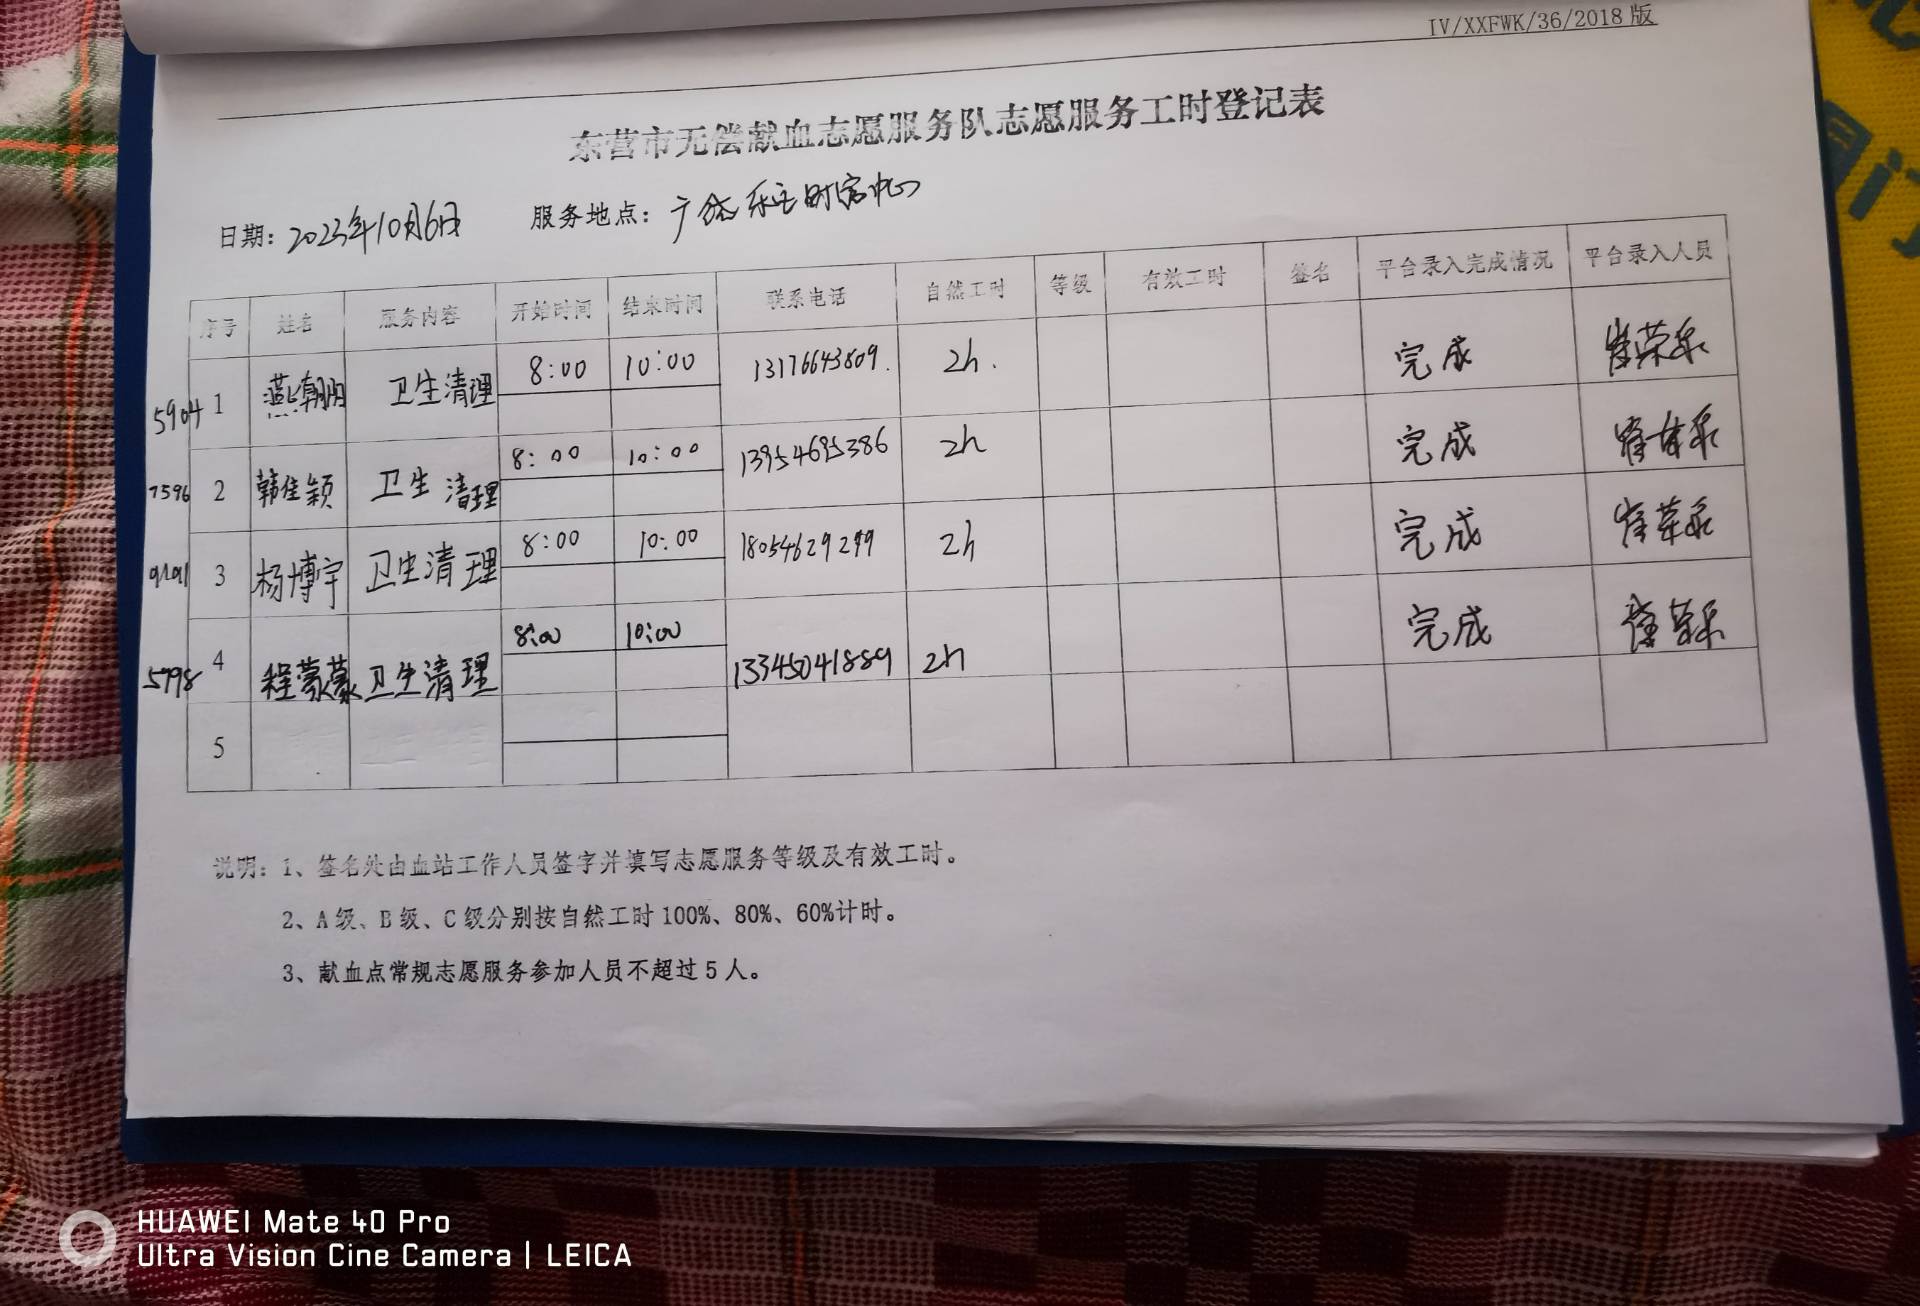 IV/XXFWK/36/2018 版
东营市无偿献血志愿服务队志愿服务工时登记表
日期：2023年10月6日 服务地点：广饶乐安时店中心
序号 姓名 服务内容 开始时间 结束时间 联系电话 自然工时 等级 有效工时 签名 平台录入完成情况 平台录入人员
5904 1 燕朝明 卫生清理 8:00 10:00 13176643809. 2h. 完成 崔荣乐
7596 2 韩佳颖 卫生清理 8:00 10:00 13954695386 2h 完成 崔荣乐
9191 3 杨博宇 卫生清理 8:00 10:00 18054629299 2h 完成 崔荣乐
5798 4 程蒙蒙 卫生清理 8:00 10:00 13345041889 2h 完成 崔荣乐
5
说明：1、签名处由血站工作人员签字并填写志愿服务等级及有效工时。
2、A 级、B 级、C 级分别按自然工时 100%、80%、60%计时。
3、献血点常规志愿服务参加人员不超过 5 人。
HUAWEI Mate 40 Pro
Ultra Vision Cine Camera | LEICA